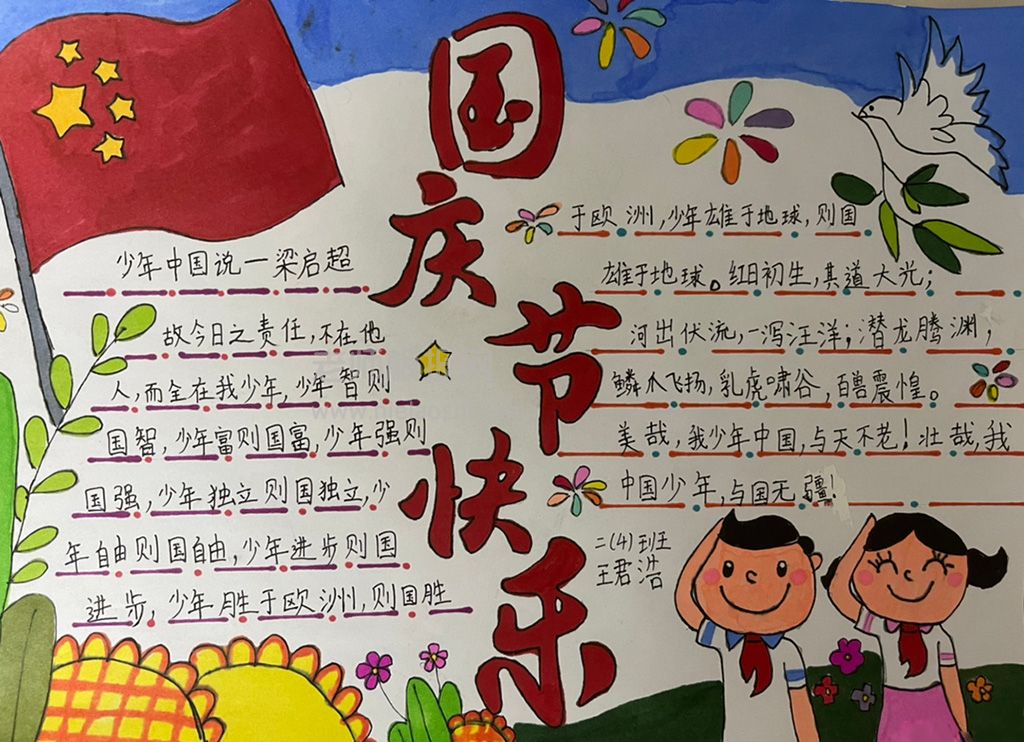 国庆节快乐
少年中国说一梁启超
故今日之责任，不在他
人，而全在我少年，少年智则
国智，少年富则国富，少年强则
国强，少年独立则国独立，少
年自由则国自由，少年进步则国
进步，少年胜于欧洲，则国胜
于欧洲，少年雄于地球，则国
雄于地球。红日初生，其道大光；
河出伏流，一泻汪洋；潜龙腾渊，
鳞爪飞扬，乳虎啸谷，百兽震惶。
美哉，我少年中国，与天不老！壮哉，我
中国少年，与国无疆！
二(4)班
王君浩